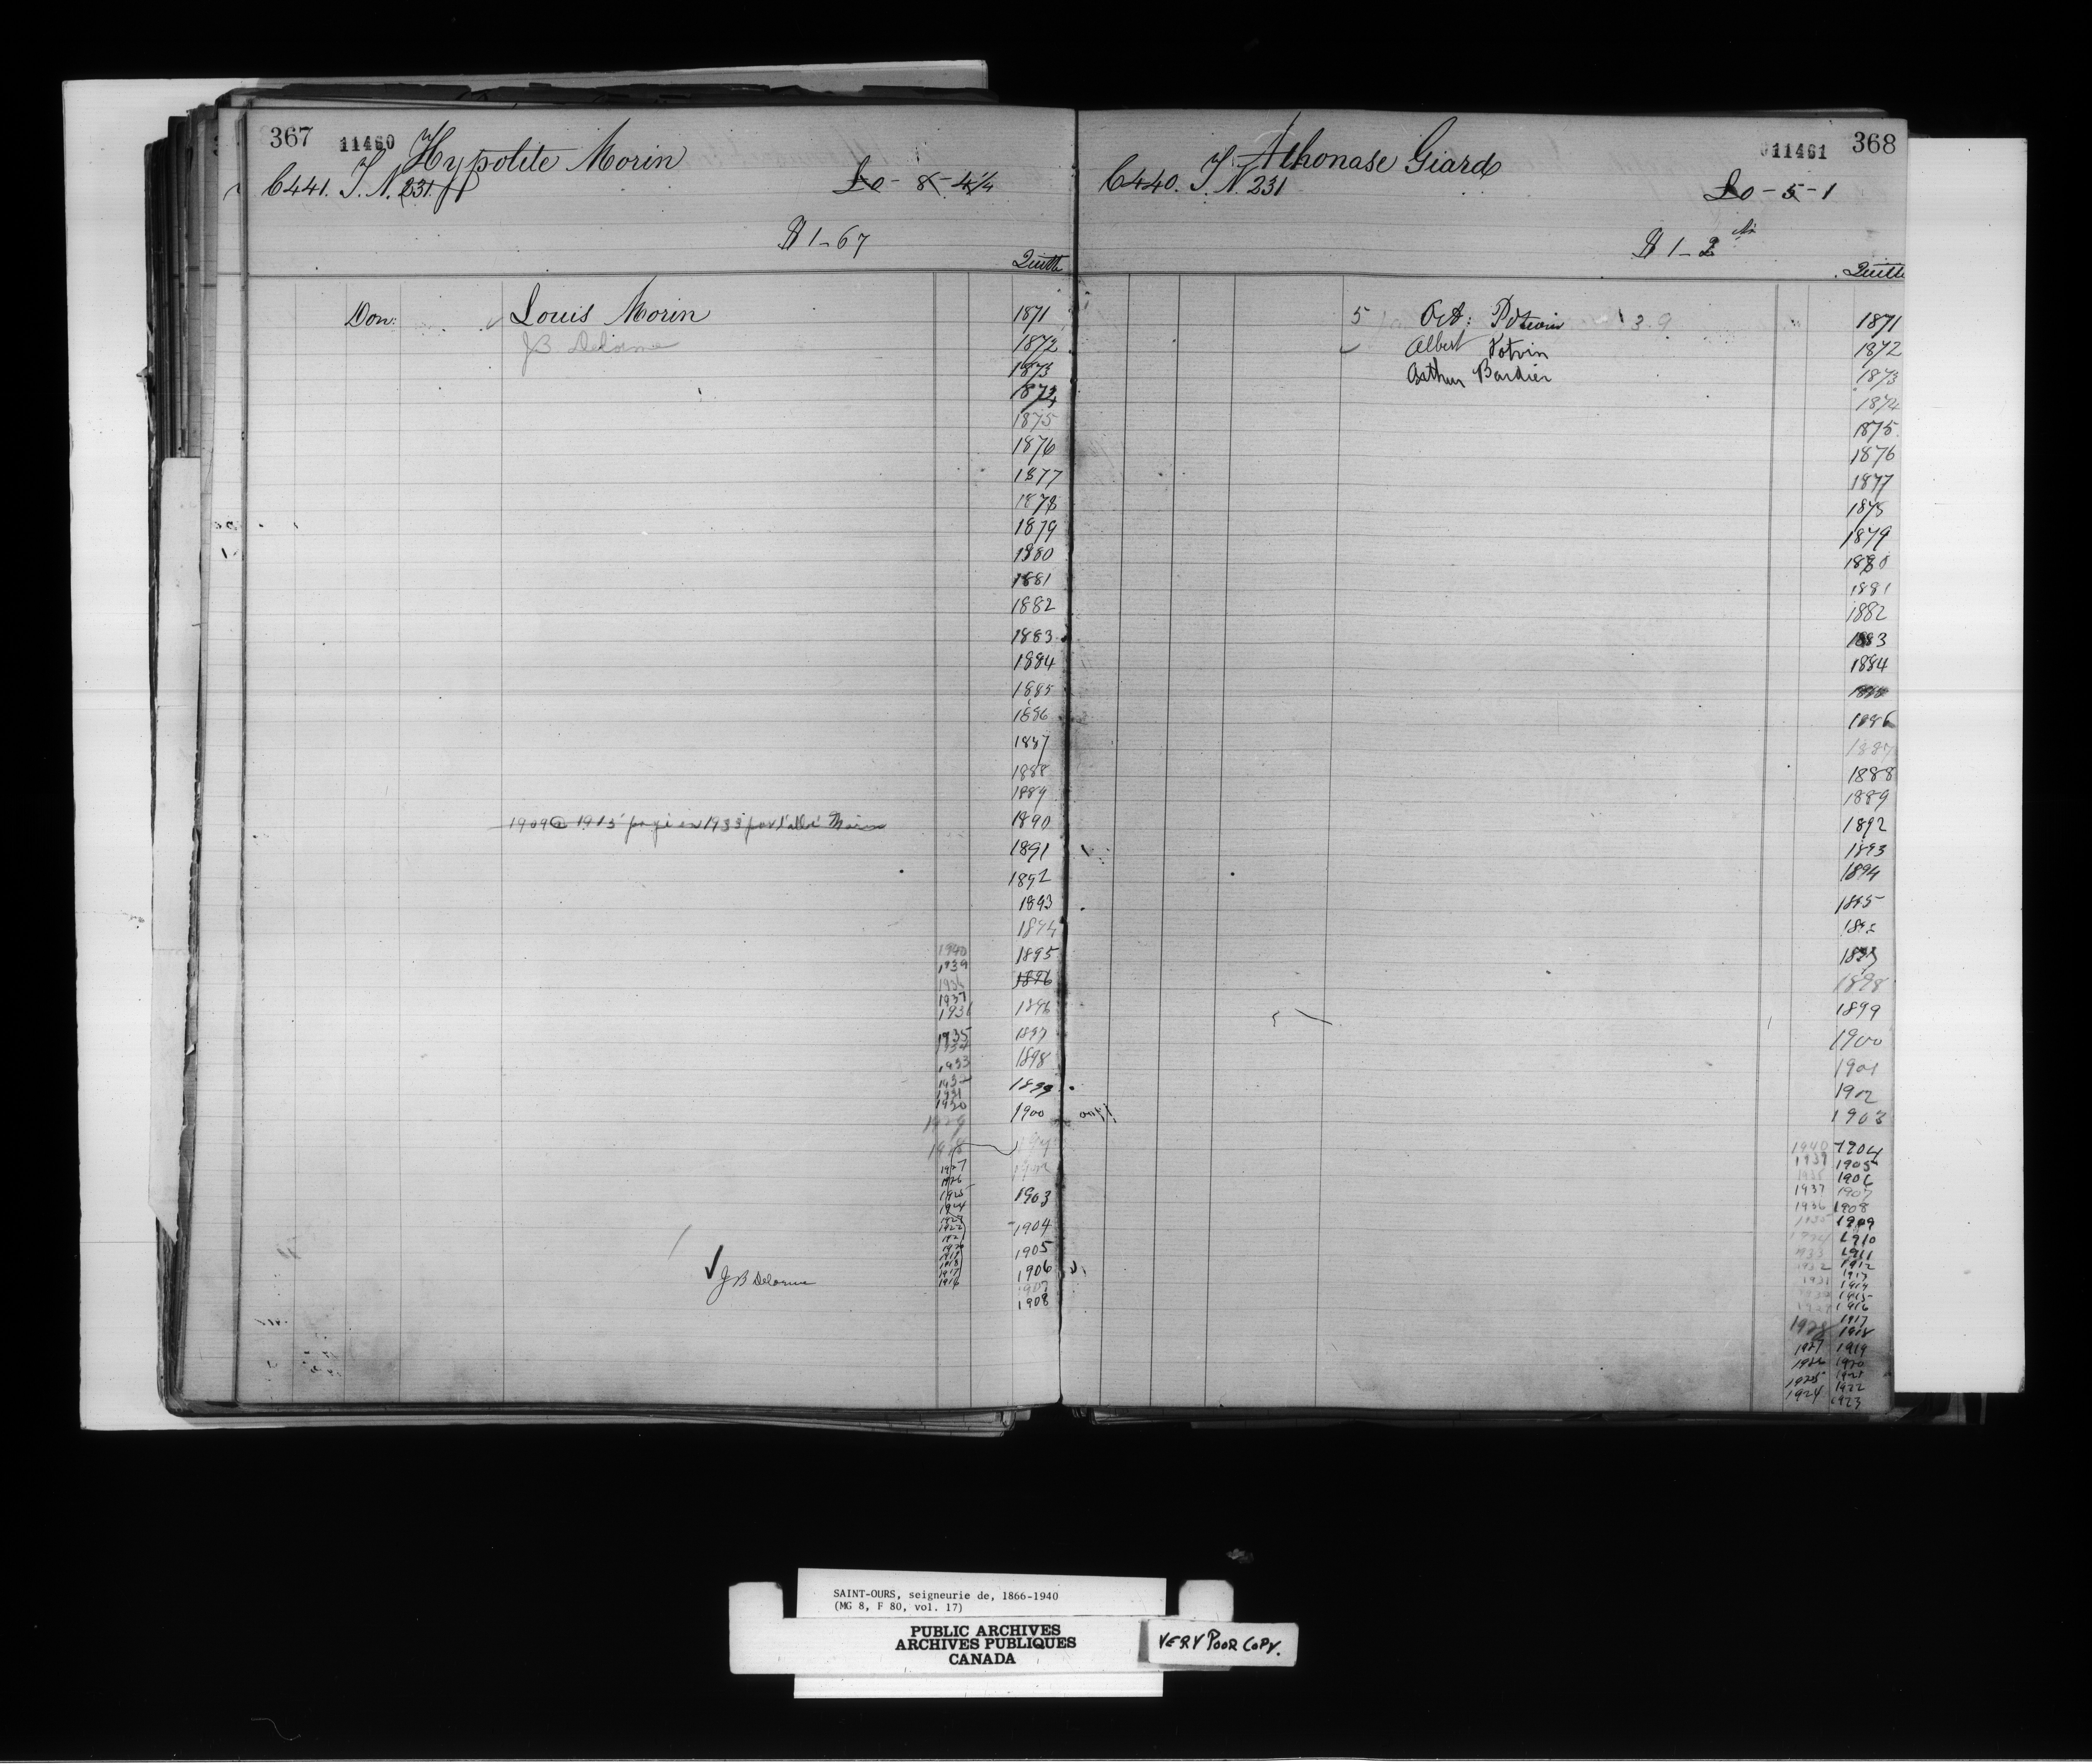 367 11460 Hypolite Morin
C441. T. N. 231.
£0 - 8 - 4 1/4
$ 1-67
Quitte
Don: Louis Morin
JB Delorme
1871
1872
1873
1874
1875
1876
1877
1878
1879
1880
1881
1882
1883
1884
1885
1886
1887
1888
1889
1909 @ 1915 payé en 1933 par l'abbé Morin
1890
1891
1892
1893
1894
1895
1896
1896
1897
1898
1899
1900
1902
1903
1904
1905
1906
1907
1908
1940
1939
1937
1935
1933
1931
1930
1929
1927
1926
1925
1924
JB Delorme
Athonase Giard 11461 368
C440. T. N. 231
£0 - 5 - 1
$ 1-2
Quitte
5 Oct: Potvin 3.9
Albert Potvin
Arthur Bardier
1871
1872
1873
1874
1875
1876
1877
1878
1879
1880
1881
1882
1883
1884
1886
1887
1888
1889
1892
1893
1894
1895
1898
1899
1900
1901
1902
1903
1940 1904
1939 1905
1906
1937 1907
1936 1908
1935 1909
1910
1933 1911
1932 1912
1931 1913
1914
1915
1916
1917
1928 1918
1927 1919
1926 1920
1925 1921
1924 1922
1923
SAINT-OURS, seigneurie de, 1866-1940
(MG 8, F 80, vol. 17)
PUBLIC ARCHIVES
ARCHIVES PUBLIQUES
CANADA
VERY POOR COPY.